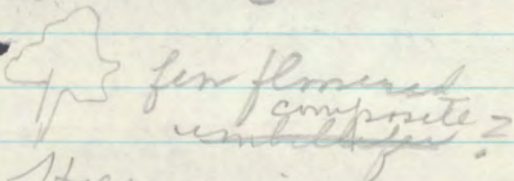 few flowered
composite
umbellifer?